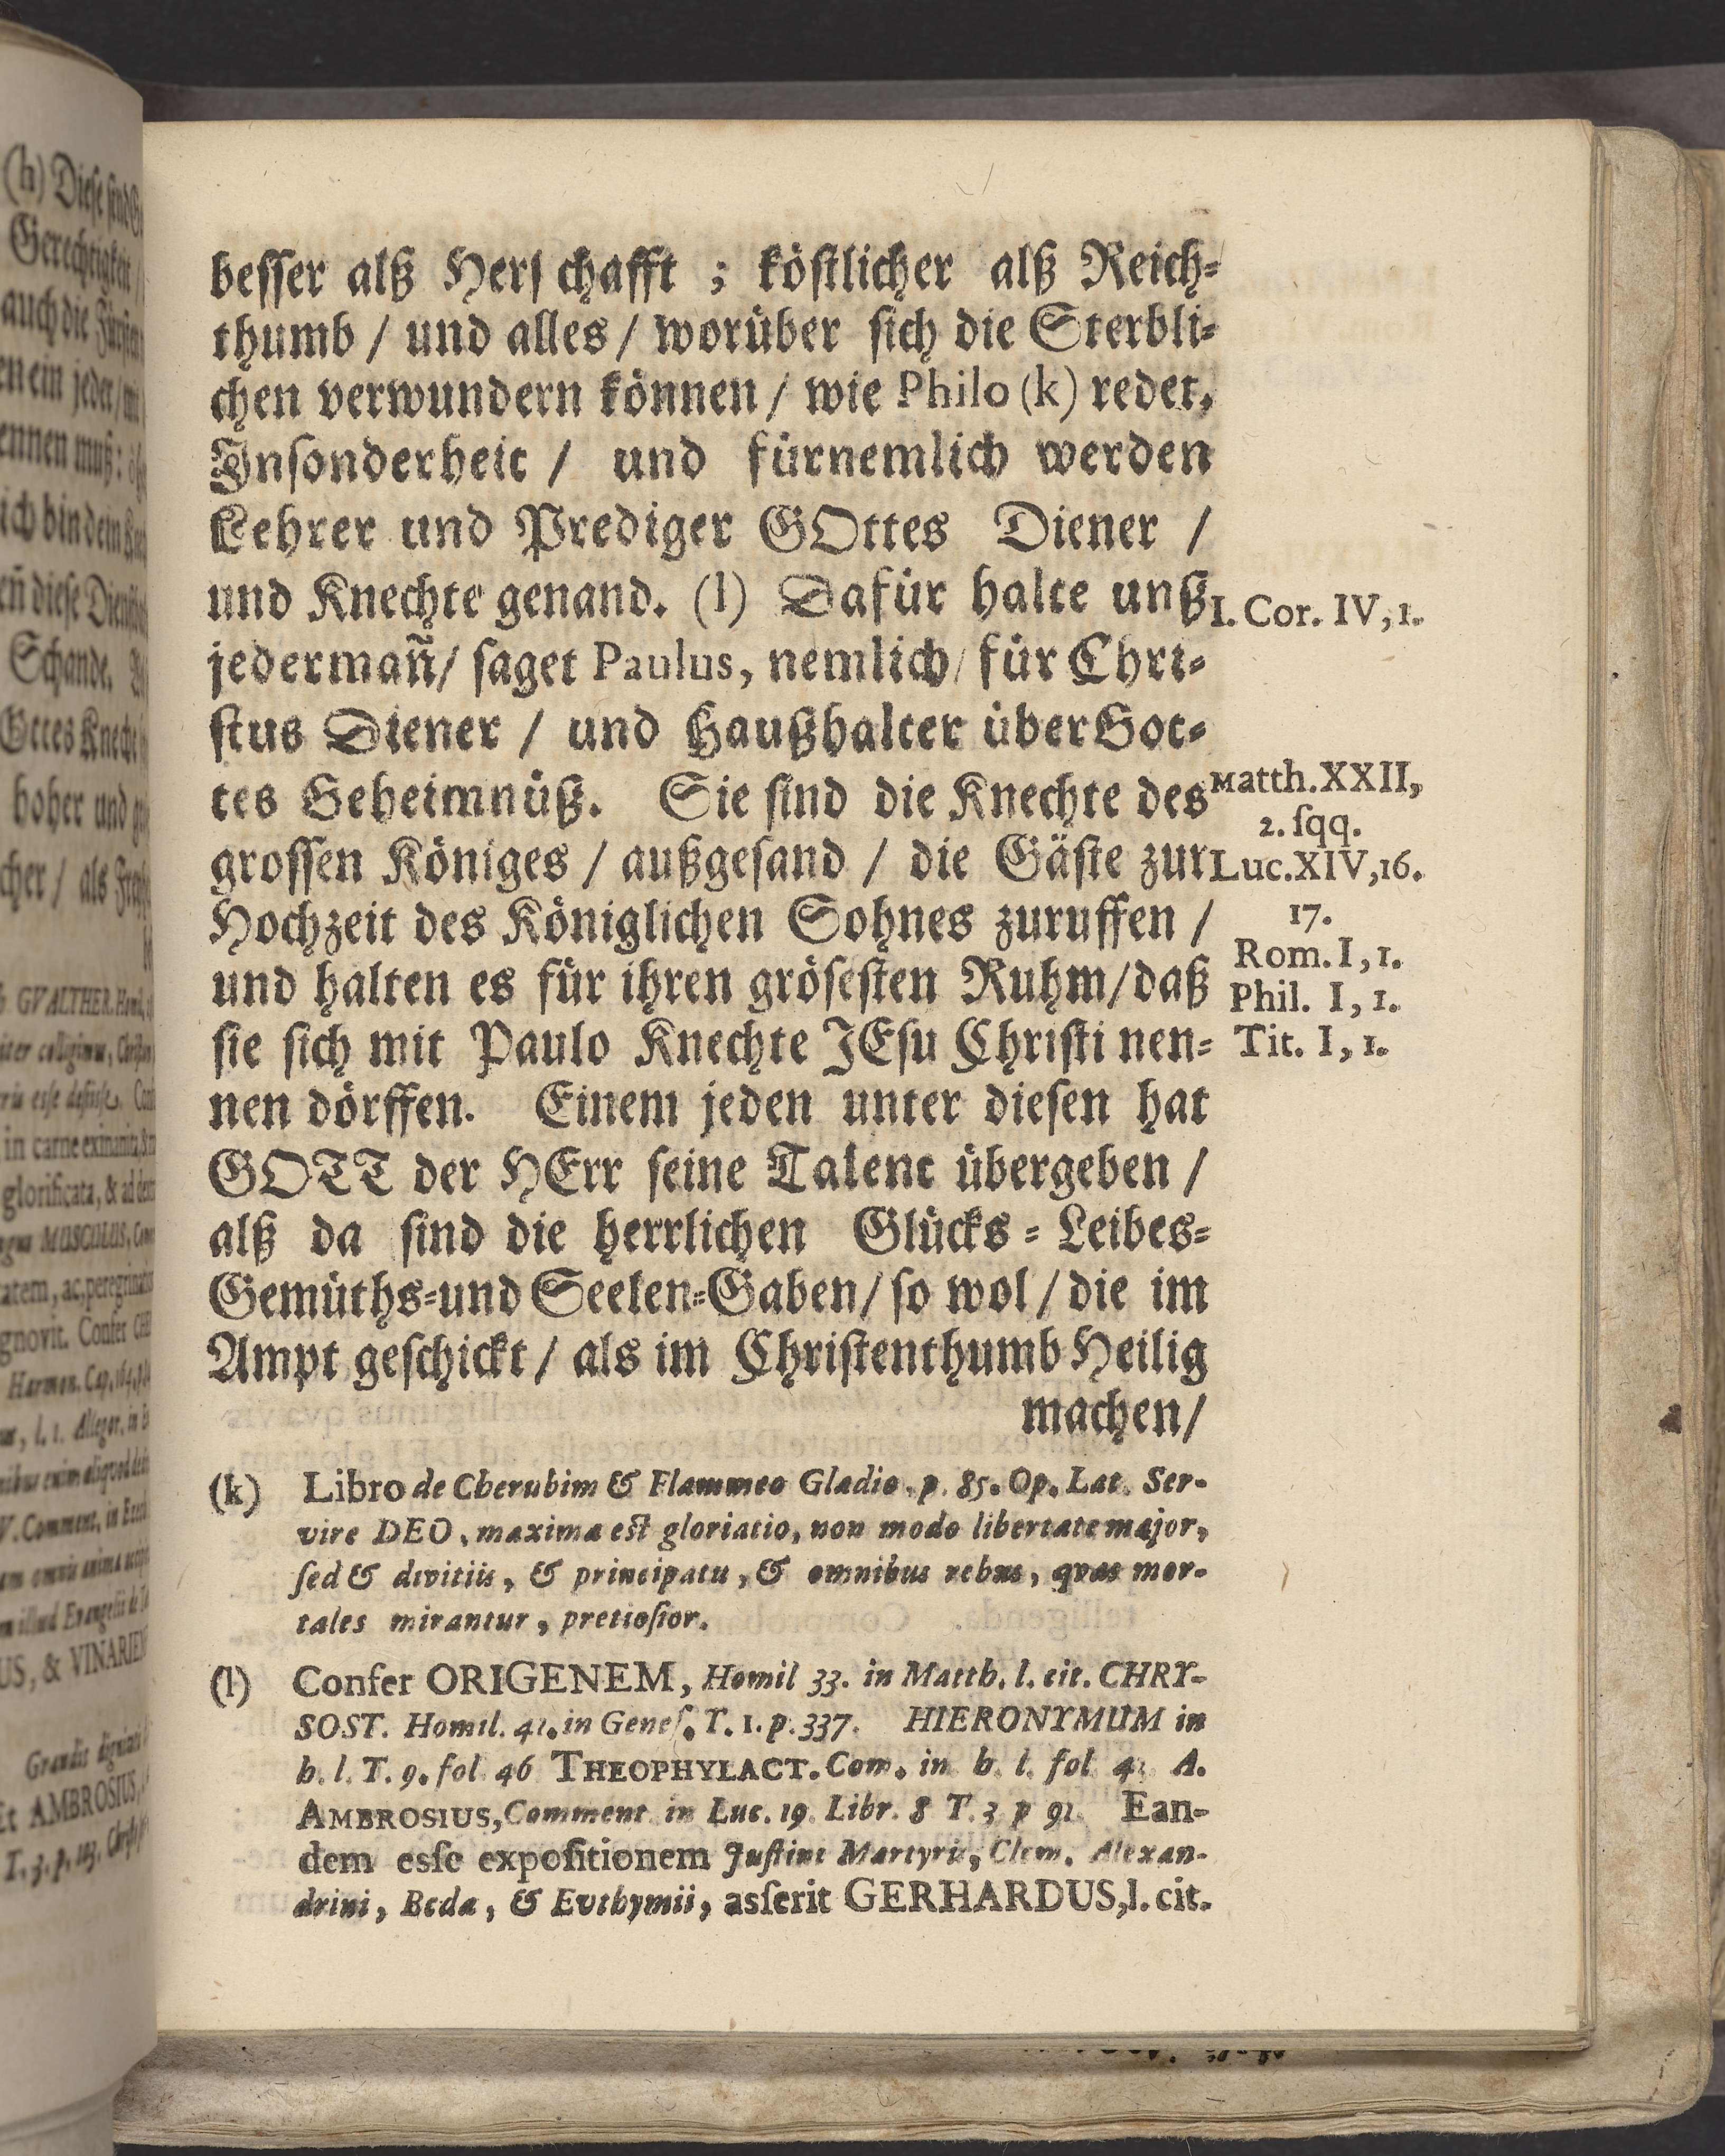 besser alß Herſchafft ; köſtlicher alß Reich-
thumb / und alles / worüber ſich die Sterbli-
chen verwundern können / wie Philo (k) redet,
Inſonderheit / und fürnemlich werden
Lehrer und Prediger GOttes Diener /
und Knechte genand. (l) Dafür halte unß
I. Cor. IV, 1.
jedermañ / ſaget Paulus, nemlich / für Chri-
ſtus Diener / und Haußhalter über Got-
tes Geheimnüß. Sie ſind die Knechte des
Matth. XXII,
2. ſqq.
groſſen Königes / außgeſand / die Gäſte zur
Luc. XIV, 16.
17.
Hochzeit des Königlichen Sohnes zuruffen /
Rom. I, 1.
und halten es für ihren gröſeſten Ruhm / daß
Phil. I, 1.
ſie ſich mit Paulo Knechte JEſu Chriſti nen-
Tit. I, 1.
nen dörffen. Einem jeden unter dieſen hat
GOTT der HErr ſeine Talent übergeben /
alß da ſind die herrlichen Glücks - Leibes-
Gemüths-und Seelen-Gaben / ſo wol / die im
Ampt geſchickt / als im Chriſtenthumb Heilig
machen /
(k) Libro de Cherubim & Flammeo Gladio. p. 85. Op. Lat. Ser-
vire DEO, maxima eſt gloriatio, non modo libertate major,
ſed & divitiis, & principatu, & omnibus rebus, quas mor-
tales mirantur, pretioſior.
(l) Confer ORIGENEM, Homil 33. in Matth. l. cit. CHRY-
SOST. Homil. 41. in Geneſ. T. 1. p. 337. HIERONYMUM in
h. l. T. 9. fol 46 THEOPHYLACT. Com. in h. l. fol A.
AMBROSIUS, Comment in Luc. 19. Libr. 8 T. 3 p 91 Ean-
dem esſe expoſitionem Juſtini Martyris, Clem. Alexan-
drini, Beda, & Euthymii, asſerit GERHARDUS, l. cit.